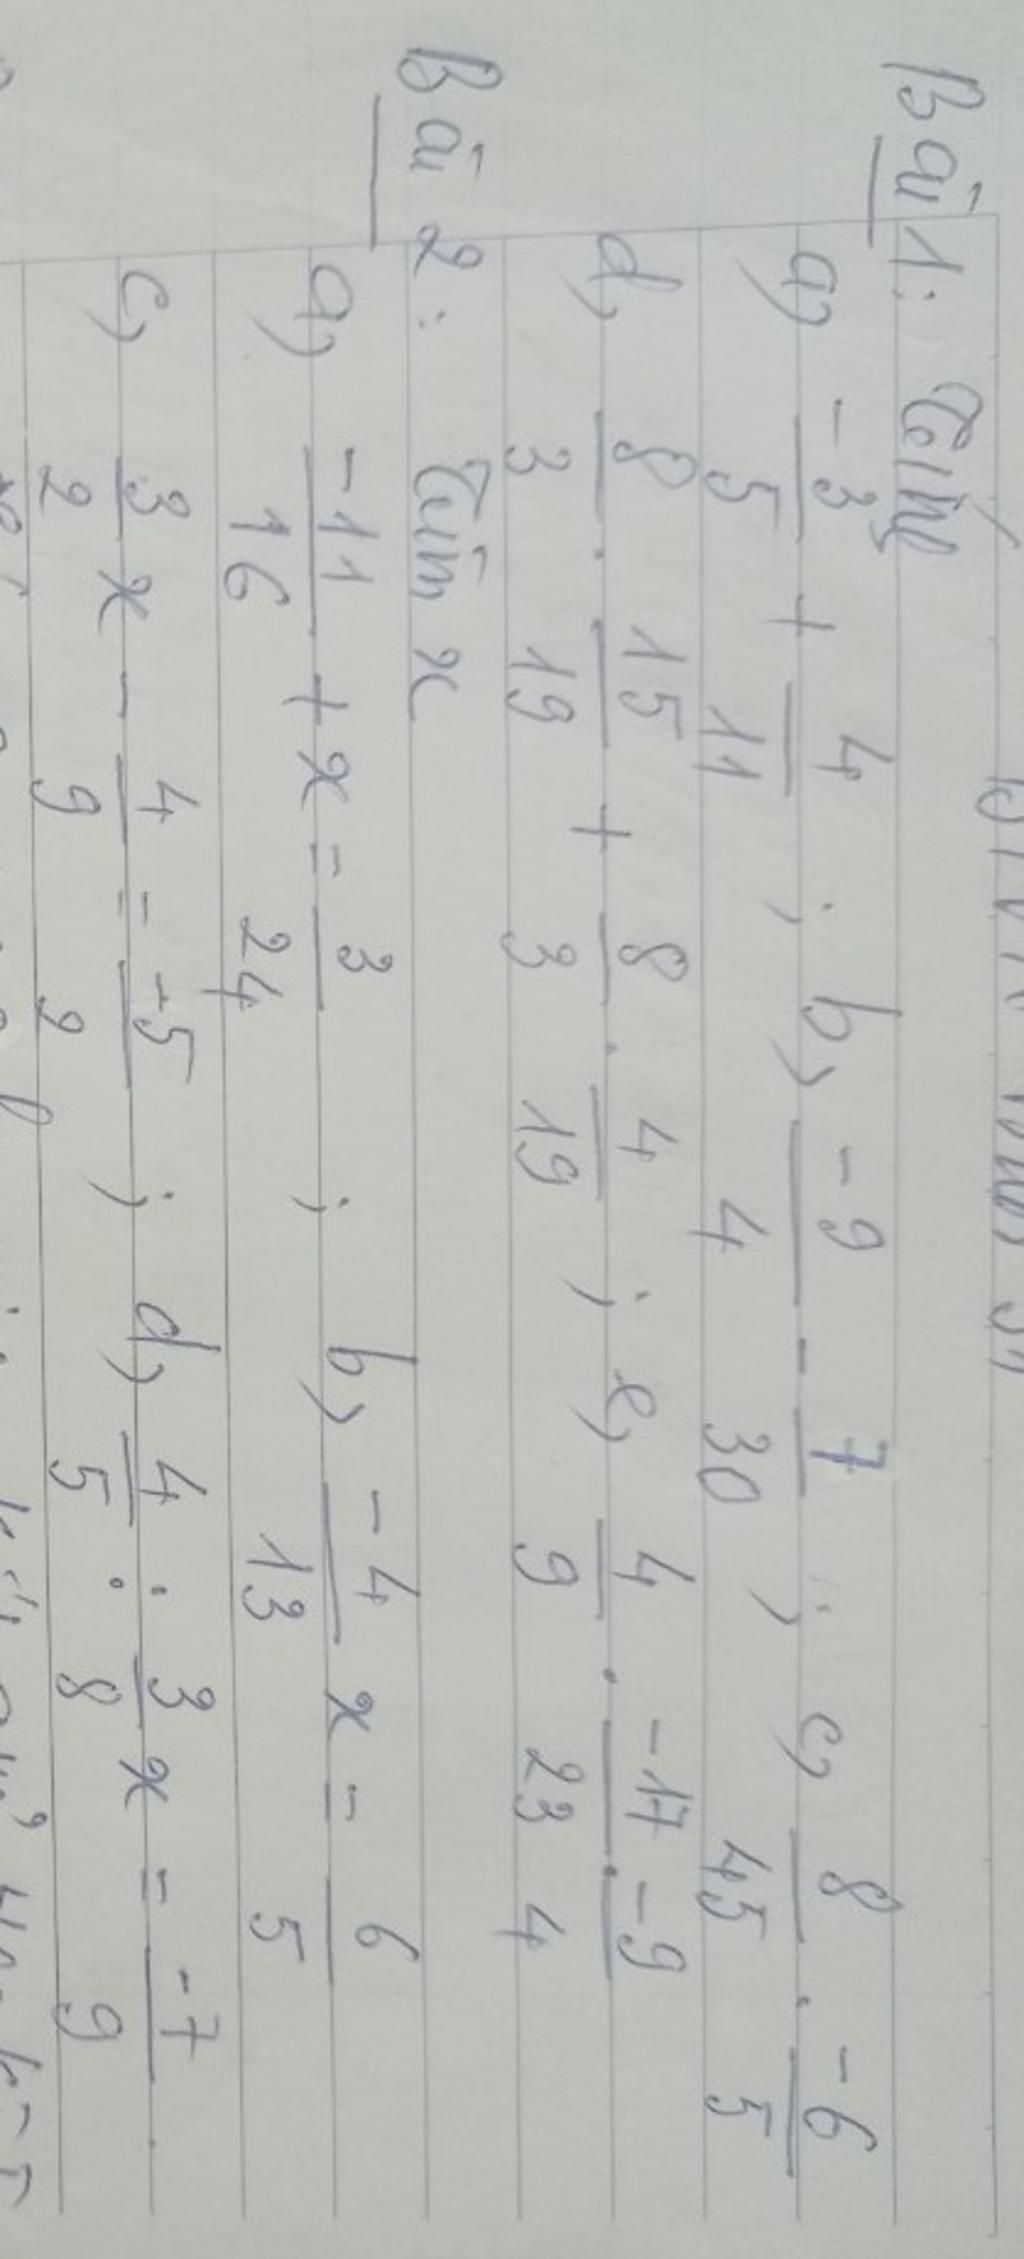 Bài 1: Tính
a) -3/5 + 4/11 ; b) -9/4 - 7/30 ; c) 8/45 . -6/5
d) 8/3 . 15/19 + 8/3 . 4/19 ; e) 4/9 . -17/23 . -9/4
Bài 2: Tìm x
a) -11/16 + x = 3/24 ; b) -4/13 x = 6/5
c) 3/2 x - 4/9 = -5/2 ; d) 4/5 : 3/8 x = -7/9 .